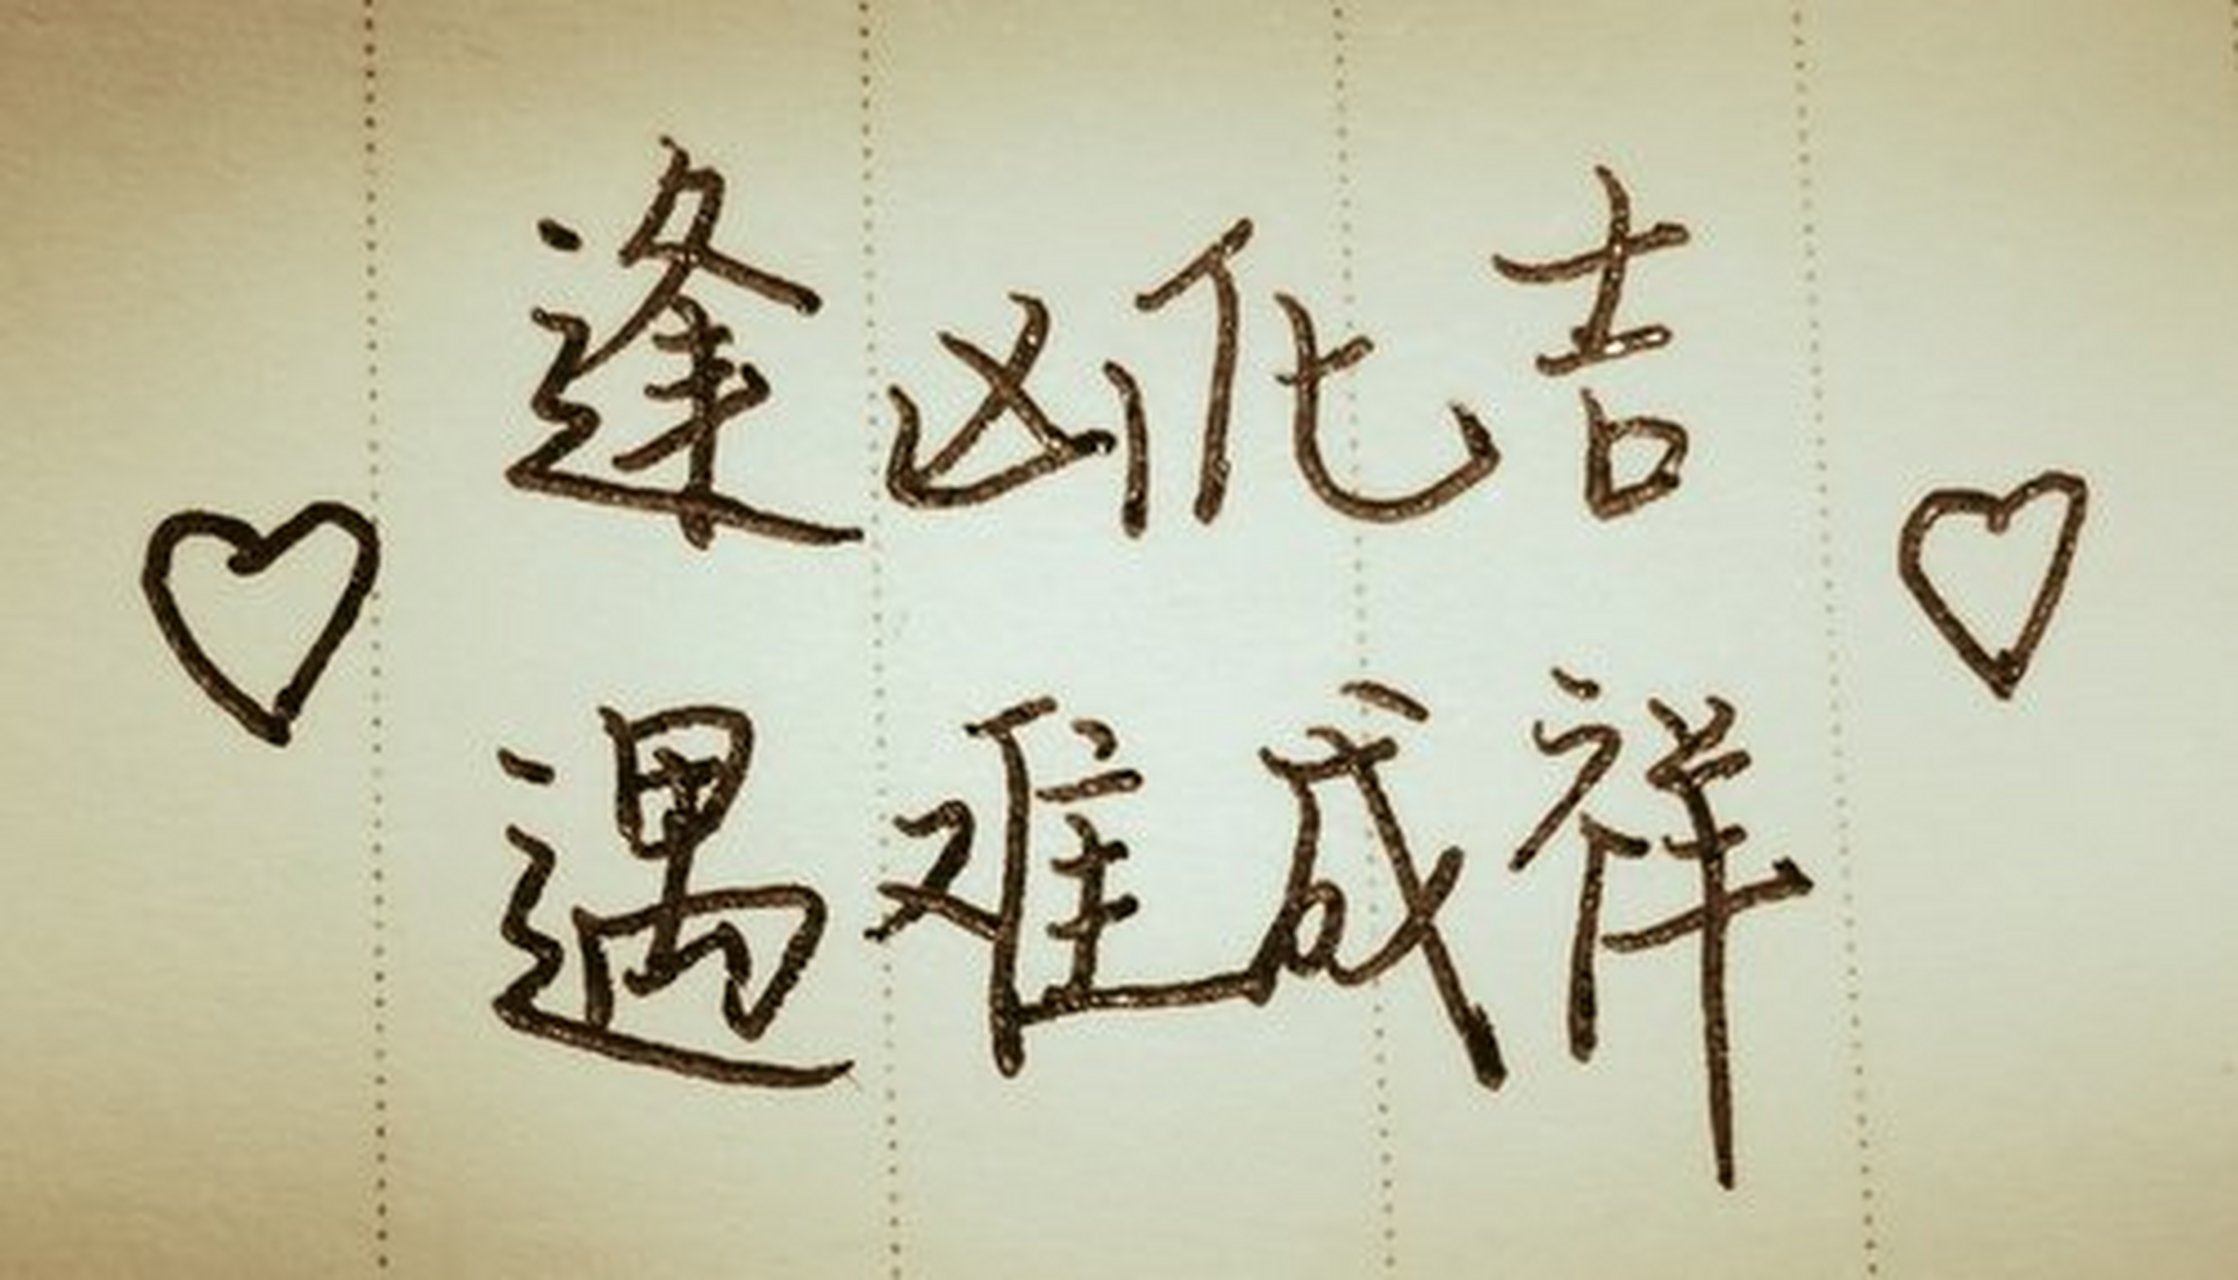 逢凶化吉
遇难成祥